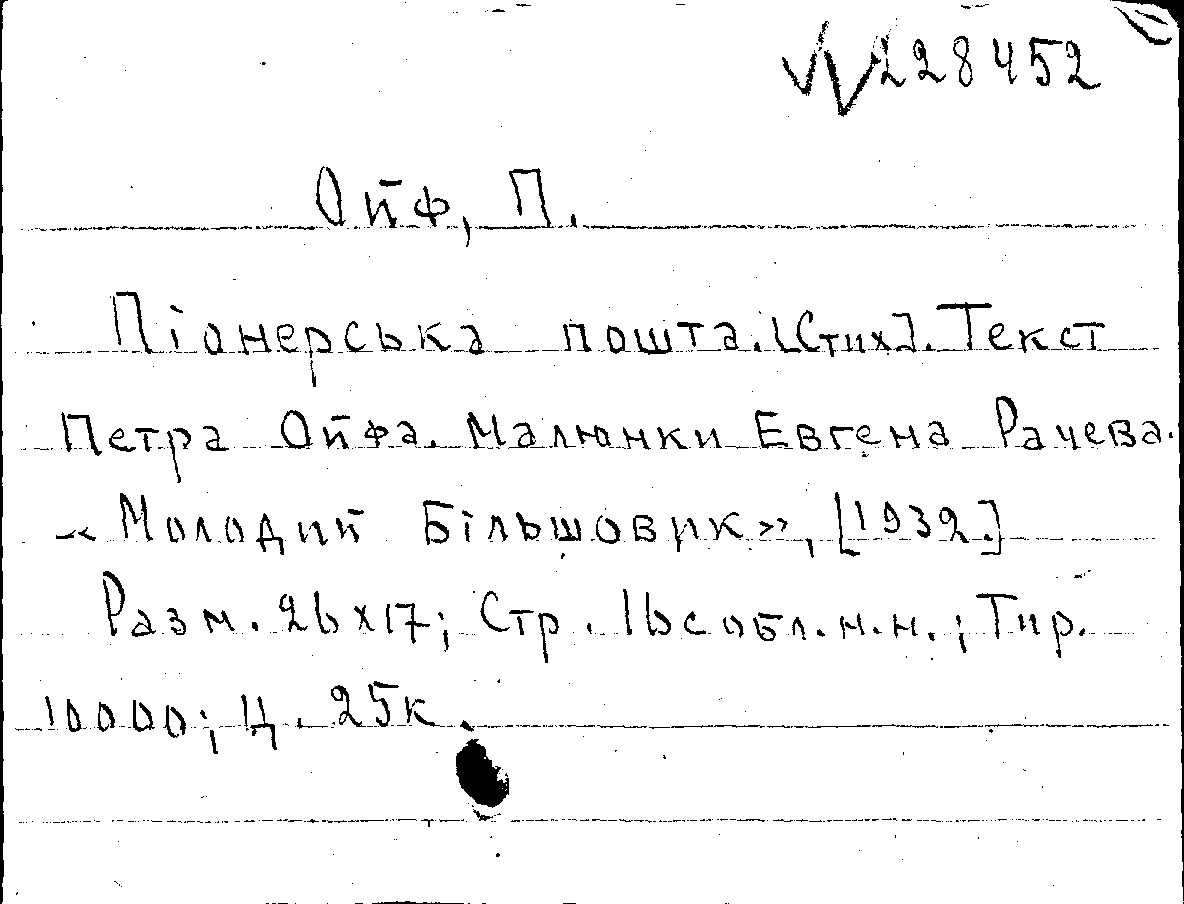 №228452
Ойф, П.
Піонерська пошта. [Стих]. Текст
Петра Ойфа. Малюнки Евгена Рачева.
«Молодий Більшовик», [1932.]
Разм. 26х17; Стр. 16 с обл. н.н.; Тир.
10000; Ц. 25к.